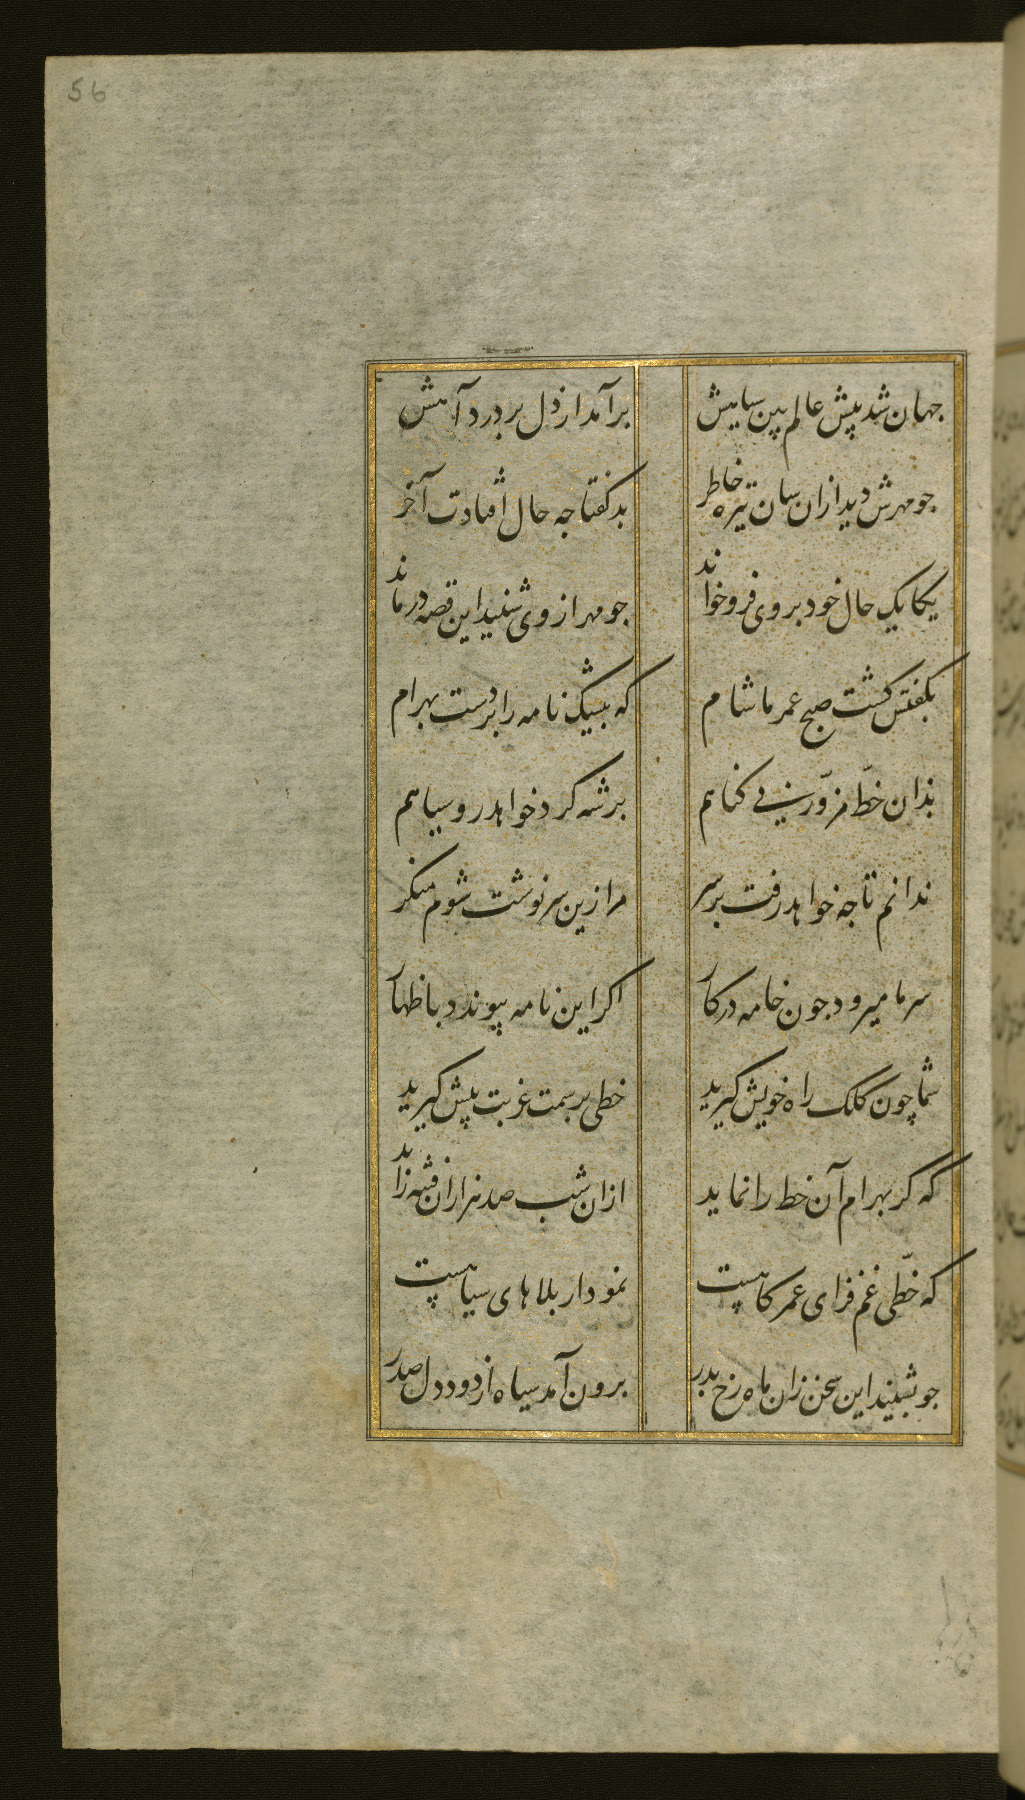 56
جهان شد پیش عالم بین سیاهیش برآمد از دل بر درد آهیش
جو مهرش دید ازان سان تیره خاطر بد کفتا جه حال افتادت آخر
یکایک حال خود بر وی فرو خواند جو مهر از وی شنید این قصه در ماند
بکفتش کشت صبح عمر ما شام که بیشک نامه را بر دست بهرام
بذان خطّ مزوّر بی کناهم بر شه کرد خواهد رو سیاهم
ندانم تا جه خواهد رفت بر سر مرا زین سرنوشت شوم منکر
سر ما میرود جون خامه در کار اکر این نامه پیوندد باظهار
شما چون کلک راه خویش کیرید خطی بر سمت غربت پیش کیرید
که کر بهرام آن خط را نماید ازان شب صد هزاران فتنه زاید
که خطّی غم فزای عمر کاهست نمودار بلاهای سیاهست
جو بشنید این سخن زان ماه رخ بدر برون آمد سیاه از دود دل صدر